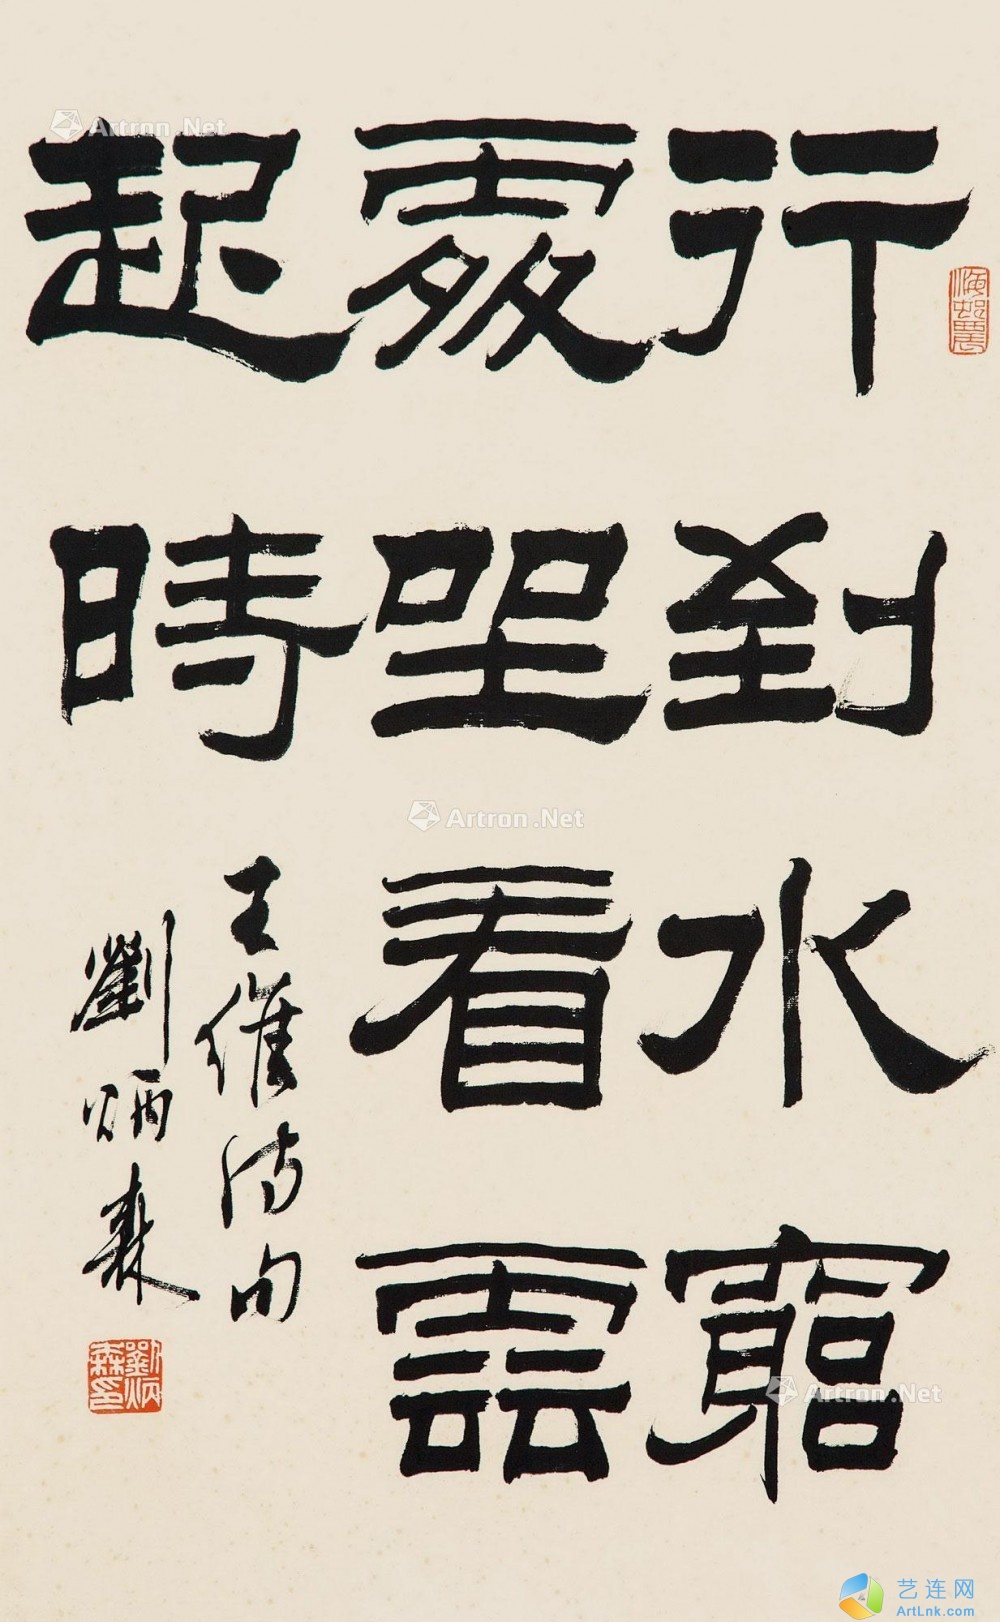 行到水窮
處坐看雲
起時
王維詩句
劉炳森
劉炳森印
Artron.Net
Artron.Net
Artron.Net
艺连网
ArtLnk.com